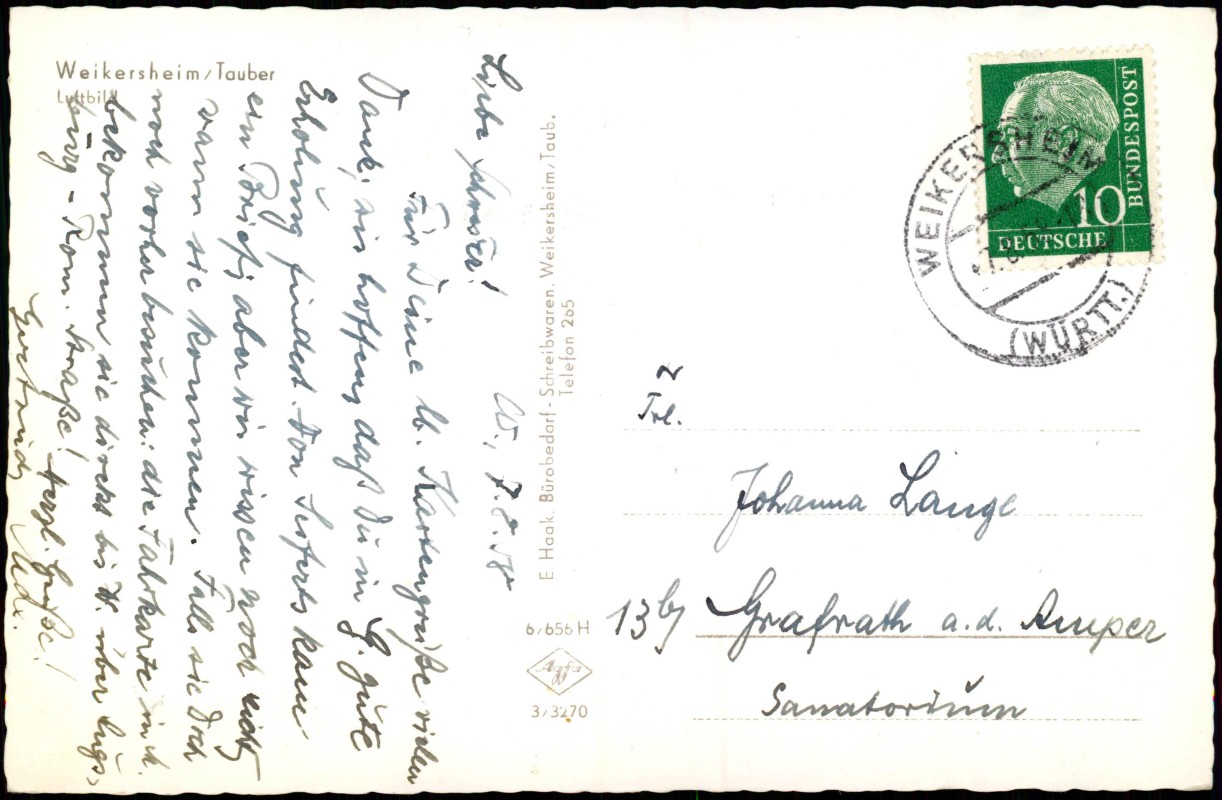 Weikersheim/Tauber
Luftbild
W., 7.8.58
Liebe
Für Deine lb. Kartengrüße vielen
Dank, wir hoffen, daß Du in G. gute
Erholung findest. Von Seiferts kam
ein Brief, aber wir wissen noch nicht,
wann sie kommen. Falls sie Dich
noch vorher besuchen: die Fahrkarte in
bekommen sie direkt bis W. über Augs-
burg - Rom. Straße! Herzl. Grüße!
Gertrud,
E. Haak, Bürobedarf - Schreibwaren, Weikersheim/Taub.
Telefon 265
6/656 H
Agfa
3/3270
10
DEUTSCHE
BUNDESPOST
WEIKERSHEIM
(WÜRTT.)
Frl.
Johanna Lange
13b, Grafrath a. d. Amper
Sanatorium